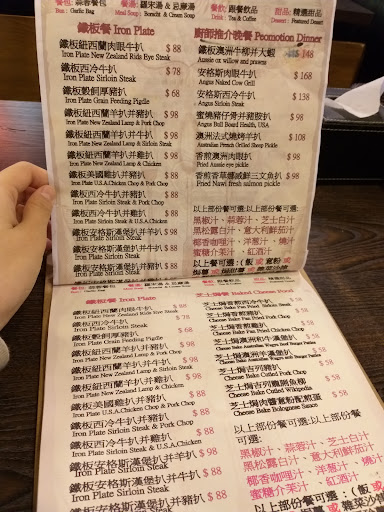 餐包: 蒜蓉餐包
Bun : Garlic Bag
餐湯: 羅宋湯 & 忌廉湯
Meal Soup : Borscht & Cream Soup
餐飲: 跟餐飲品
Drink : Tea & Coffee
甜品: 精選甜品
Dessert : Featured Dessert
鐵板餐 Iron Plate
鐵板紐西蘭肉眼牛扒 $ 88
Iron Plate New Zealand Ride Eye Steak
鐵板西冷牛扒 $ 78
Iron Plate Sirloin Steak
鐵板穀飼厚豬扒 $ 68
Iron Plate Grain Feeding Pigdle
鐵板紐西蘭羊扒拼豬扒 $ 88
Iron Plate New Zealand Lamp & Pork Chop
鐵板紐西蘭羊扒拼牛扒 $ 88
Iron Plate New Zealand Lamp & Sirloin Steak
鐵板紐西蘭羊扒拼雞扒 $ 88
Iron Plate New Zealand Lamp & Chicken
鐵板美國雞扒拼豬扒 $ 68
Iron Plate U.S.A.Chicken Chop & Pork Chop
鐵板西冷牛扒拼豬扒 $ 68
Iron Plate Sirloin Steak & Pork Chop
鐵板西冷牛扒拼雞扒 $ 68
Iron Plate Sirloin Steak & U.S.A.Chicken
鐵板安格斯漢堡扒拼羊扒 $ 98
鐵板安格斯漢堡扒拼牛扒 $ 98
Iron Plate Sirloin Steak
廚師推介晚餐 Peomotion Dinner
鐵板澳洲牛柳拼大蝦 148
Aussie ox willow and prawns
安格斯肉眼牛扒 $ 168
Angus Naked Cow Grill
安格斯西冷牛扒 $ 138
Angus Sirloin Steak
蜜燒豬仔骨拼豬肢扒 $ 98
Angus Bull Board Health, USA
澳洲法式燒烤羊扒 $ 108
Australian French Grilled Sheep Prickle
香煎澳洲肉眼扒 $ 98
Fried Aussie eye pickle
香煎香草挪威鮮三文魚扒 $ 98
Fried Nawi fresh salmon pickle
以上部份餐可選:以上部份餐可選:
黑椒汁、蒜蓉汁、芝士白汁
黑松露白汁、意大利鮮茄汁
椰香咖哩汁、洋葱汁、燒汁
蜜糖介茉汁、紅酒汁
鐵板餐 Iron Plate
鐵板紐西蘭肉眼牛扒 $ 88
Iron Plate New Zealand Ride Eye Steak
鐵板西冷牛扒 $ 78
Iron Plate Sirloin Steak
鐵板穀飼厚豬扒 $ 68
Iron Plate Grain Feeding Pigdle
鐵板紐西蘭羊扒拼豬扒 $ 88
Iron Plate New Zealand Lamp & Pork Chop
鐵板紐西蘭羊扒拼牛扒 $ 88
Iron Plate New Zealand Lamp & Sirloin Steak
鐵板紐西蘭羊扒拼雞扒 $ 88
Iron Plate New Zealand Lamp & Chicken
鐵板美國雞扒拼豬扒 $ 68
Iron Plate U.S.A.Chicken Chop & Pork Chop
鐵板西冷牛扒拼豬扒 $ 68
Iron Plate Sirloin Steak & Pork Chop
鐵板西冷牛扒拼雞扒 $ 68
Iron Plate Sirloin Steak & U.S.A.Chicken
鐵板安格斯漢堡扒拼羊扒 $ 98
Iron Plate Sirloin Steak
鐵板安格斯漢堡扒拼牛扒 $ 98
芝士焗餐 Baked Cheese Food
芝士焗香煎西冷牛扒
Cheese Bake Pan Fried Sirloin Steak
芝士焗香煎豬扒
Cheese Bake Pan Fried Pork Chop
芝士焗香煎雞扒
Cheese Bake Pan Fried Chicken Chop
芝士焗澳洲和牛漢堡扒
芝士焗澳洲羊漢堡扒 $ 58
芝士焗吉列豬扒 $ 58
Cheese Bake Cutled Pork Chop
芝士焗吉列龍脷魚柳 $ 58
Cheese Bake Cutled Wikipedia
芝士焗肉醬意粉配煎蛋 $ 58
Cheese Bake Bolognese Sauce
以上部份餐可選:以上部份餐
可選:
黑椒汁、蒜蓉汁、芝士白汁
黑松露白汁、意大利鮮茄汁
椰香咖哩汁、洋葱汁、燒汁
蜜糖介茉汁、紅酒汁